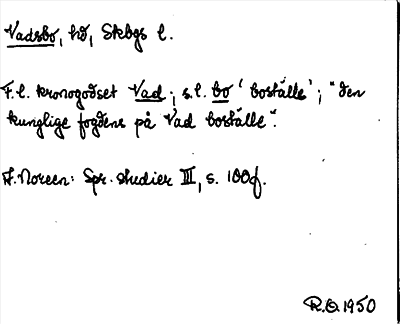 Vadsbo, hd, Skbgs l.
F.l. kronogodset Vad; s.l. bo 'boställe'; "den
kunglige fogdens på Vad boställe".
A. Noreen: Spr. studier III, s. 100f.
R.O. 1950